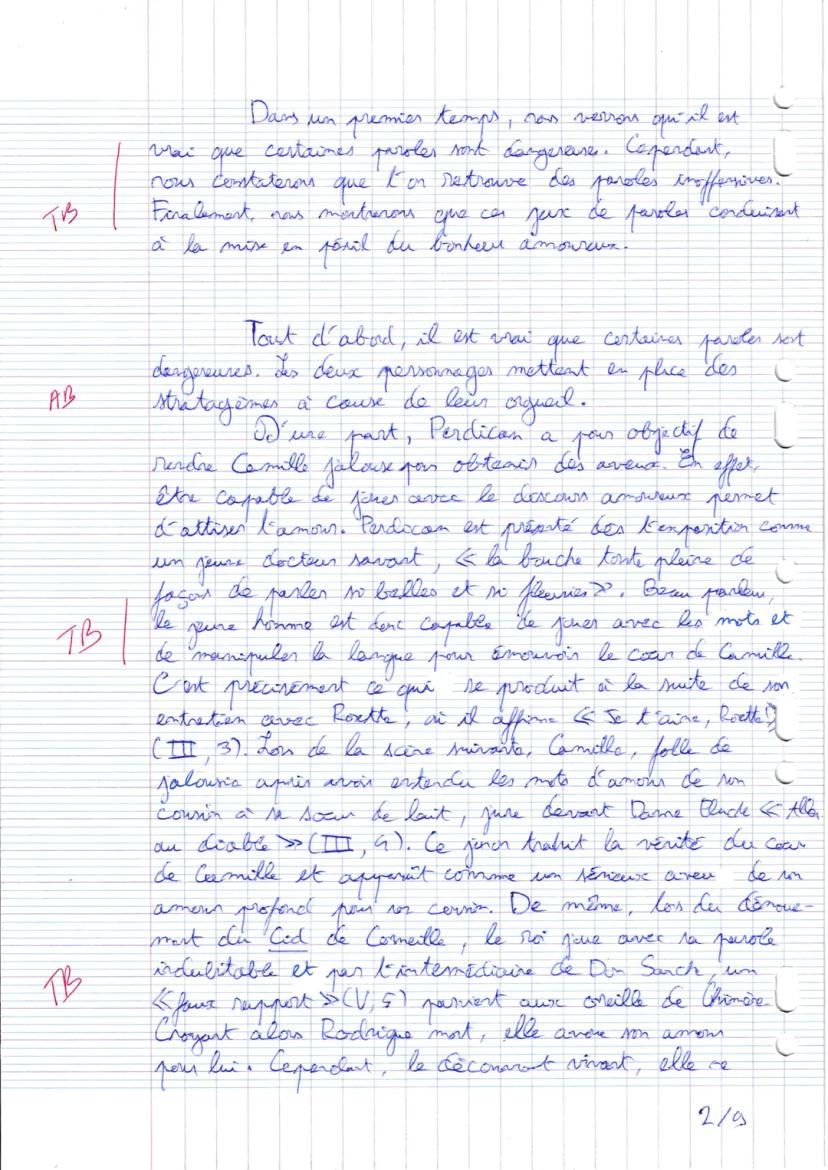 Dans un premier temps, nous verrons qu'il est
vrai que certaines paroles sont dangereuse. Cependant,
nous constaterons que l'on retrouve des paroles inoffensives.
TB
Finalement, nous montrerons que ces jeux de paroles conduisent
à la mise en péril du bonheur amoureux.
Tout d'abord, il est vrai que certaines paroles sont
dangereuses. Les deux personnages mettent en place des
AB
stratagèmes à cause de leur orgueil.
D'une part, Perdican a pour objectif de
rendre Camille jalouse pour obtenir des aveux. En effet,
être capable de jouer avec le discours amoureux permet
d'attiser l'amour. Perdican est présenté dès l'exposition comme
un jeune docteur savant, « la bouche toute pleine de
façons de parler si belles et si fleuries ». Beau parleur,
TB
le jeune homme est donc capable de jouer avec les mots et
de manipuler la langue pour émouvoir le cœur de Camille.
C'est précisément ce qui se produit à la suite de son
entretien avec Rosette, où il affirme « Je t'aime, Rosette! »
(III, 3). Lors de la scène suivante, Camille, folle de
jalousie après avoir entendu les mots d'amour de son
cousin à sa sœur de lait, jure devant Dame Pluche « Allez
au diable » (III, 4). Ce juron trahit la vérité du cœur
de Camille et apparaît comme un sérieux aveu de son
amour profond pour son cousin. De même, lors du dénoue-
ment du Cid de Corneille, le roi joue avec sa parole
TB
indubitable et par l'intermédiaire de Don Sanch, un
« faux rapport » (V, 5) parvient aux oreille de Chimène.
Croyant alors Rodrigue mort, elle avoue son amour
pour lui. Cependant, le découvrant vivant, elle se
2/9